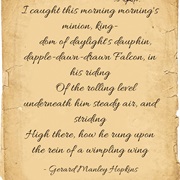 I caught this morning morning's
minion, king-
dom of daylight's dauphin,
dapple-dawn-drawn Falcon, in
his riding
Of the rolling level
underneath him steady air, and
striding
High there, how he rung upon
the rein of a wimpling wing
- Gerard Manley Hopkins